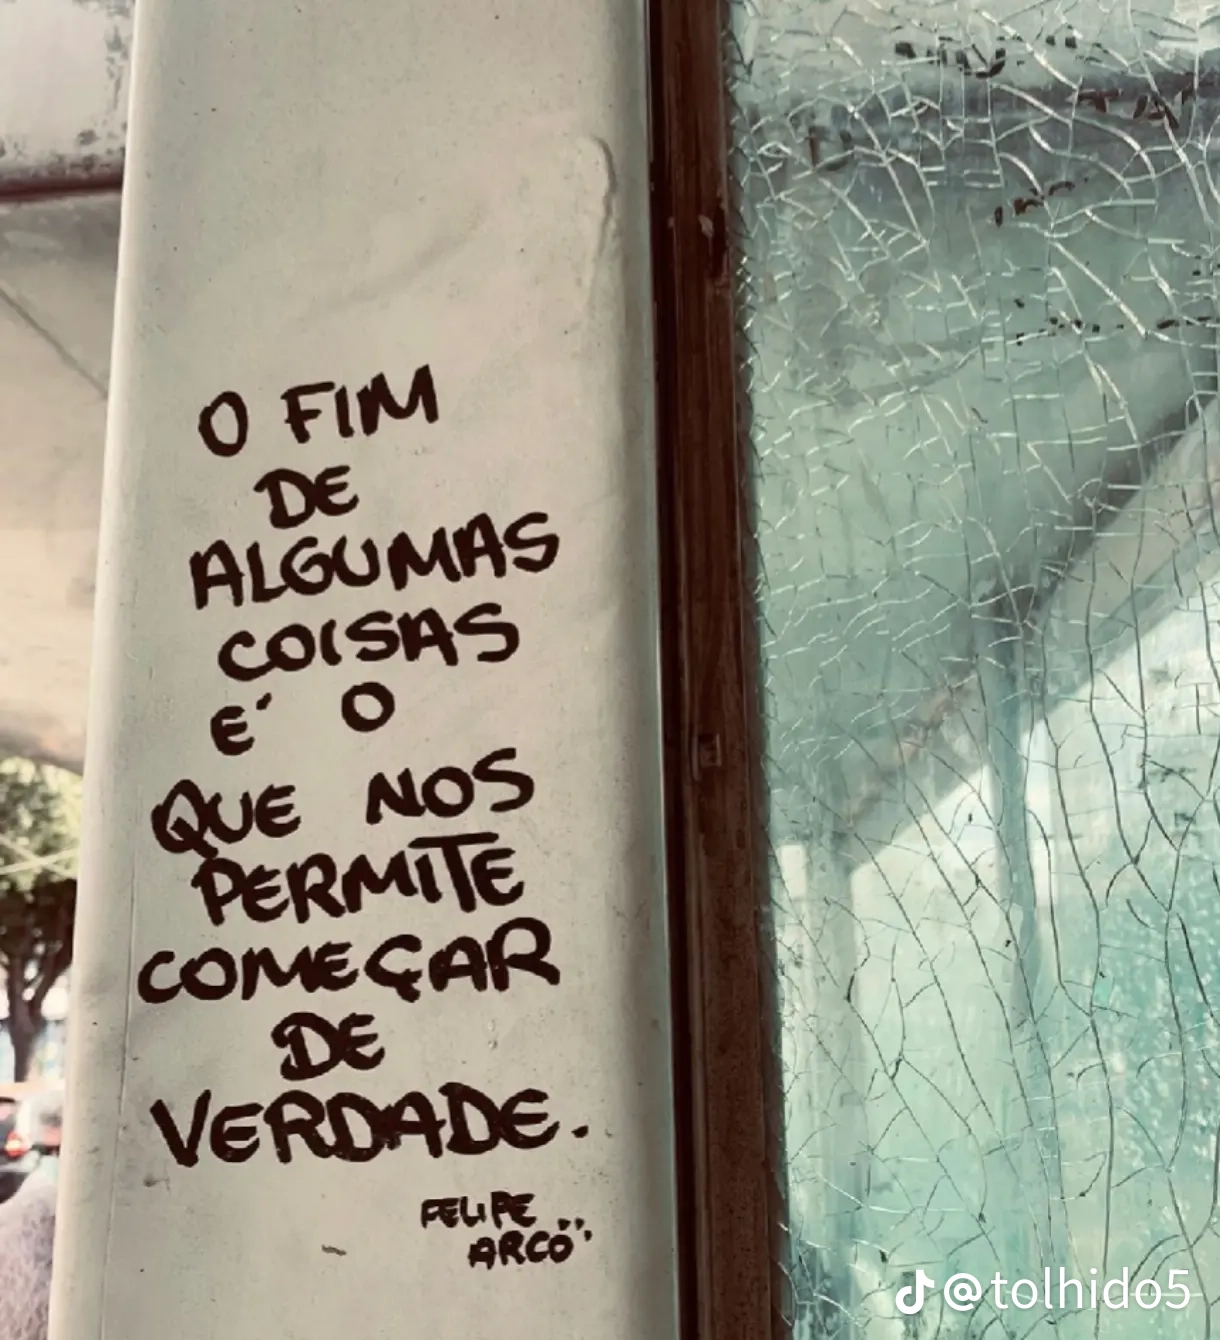 O FIM
DE
ALGUMAS
COISAS
E' O
QUE NOS
PERMITE
COMEÇAR
DE
VERDADE.
FELIPE
ARCO
@tolhido5